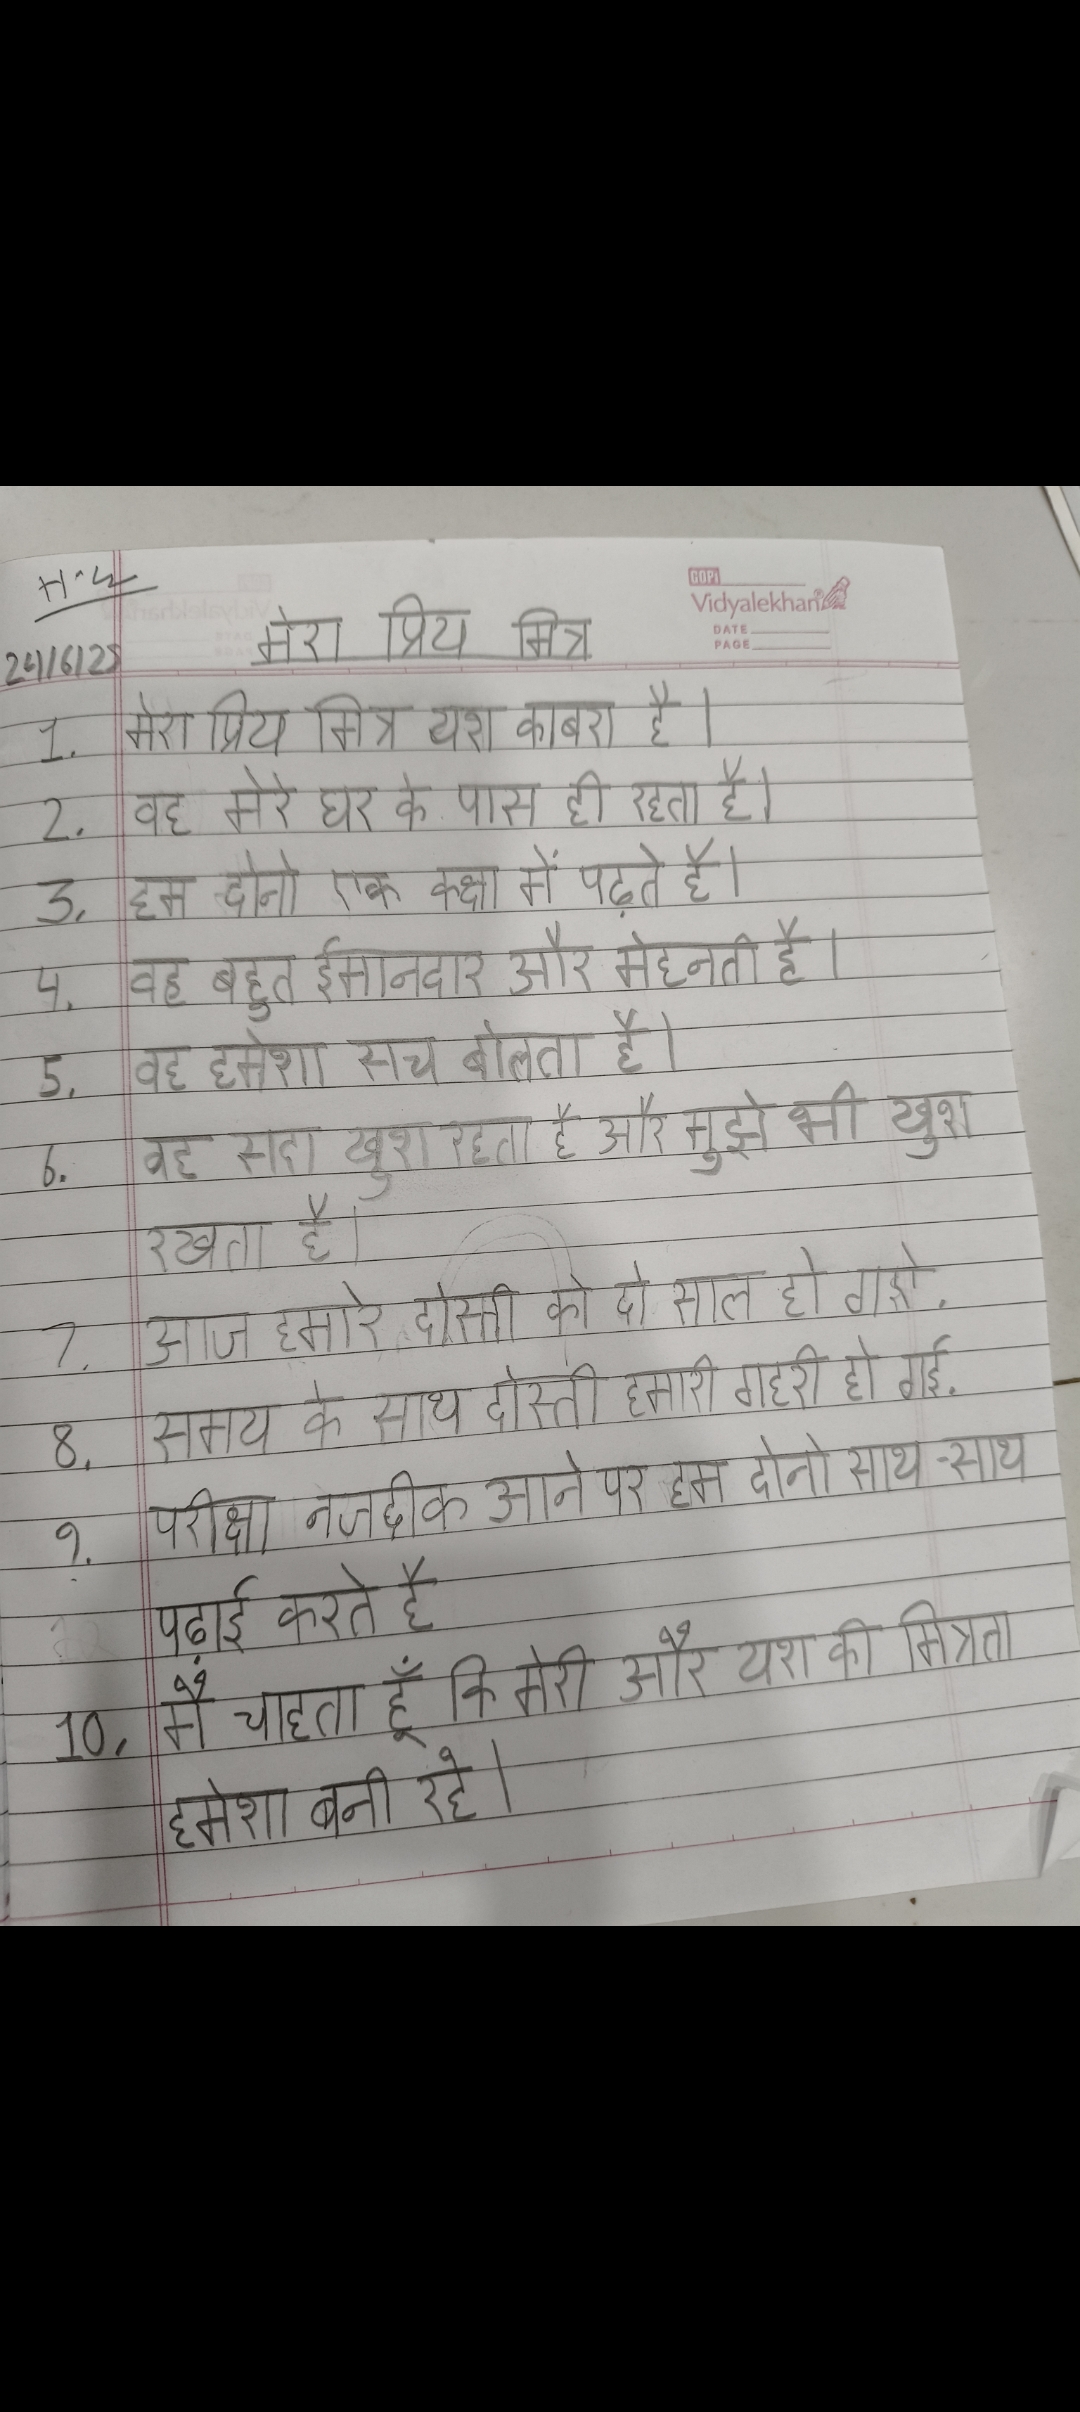 H.W
मेरा प्रिय मित्र
COPI
Vidyalekhan
DATE
PAGE
1. मेरा प्रिय मित्र यश काबरा है।
2. वह मेरे घर के पास ही रहता है।
3. हम दोनो एक कक्षा में पढ़ते है।
4. वह बहुत ईमानदार और मेहनती है।
5. वह हमेशा सच बोलता है।
6. वह सदा खुश रहता है और मुझे भी खुश
रखता है।
7. आज हमारे दोस्ती को दो साल हो
8. समय के साथ दोस्ती हमारी गहरी हो गई.
9. परीक्षा नजदीक आने पर हम दोनो साथ-साथ
पढ़ाई करते है
10. मैं चाहता हूँ कि मेरी और यश की मित्रता
हमेशा बनी रहे।